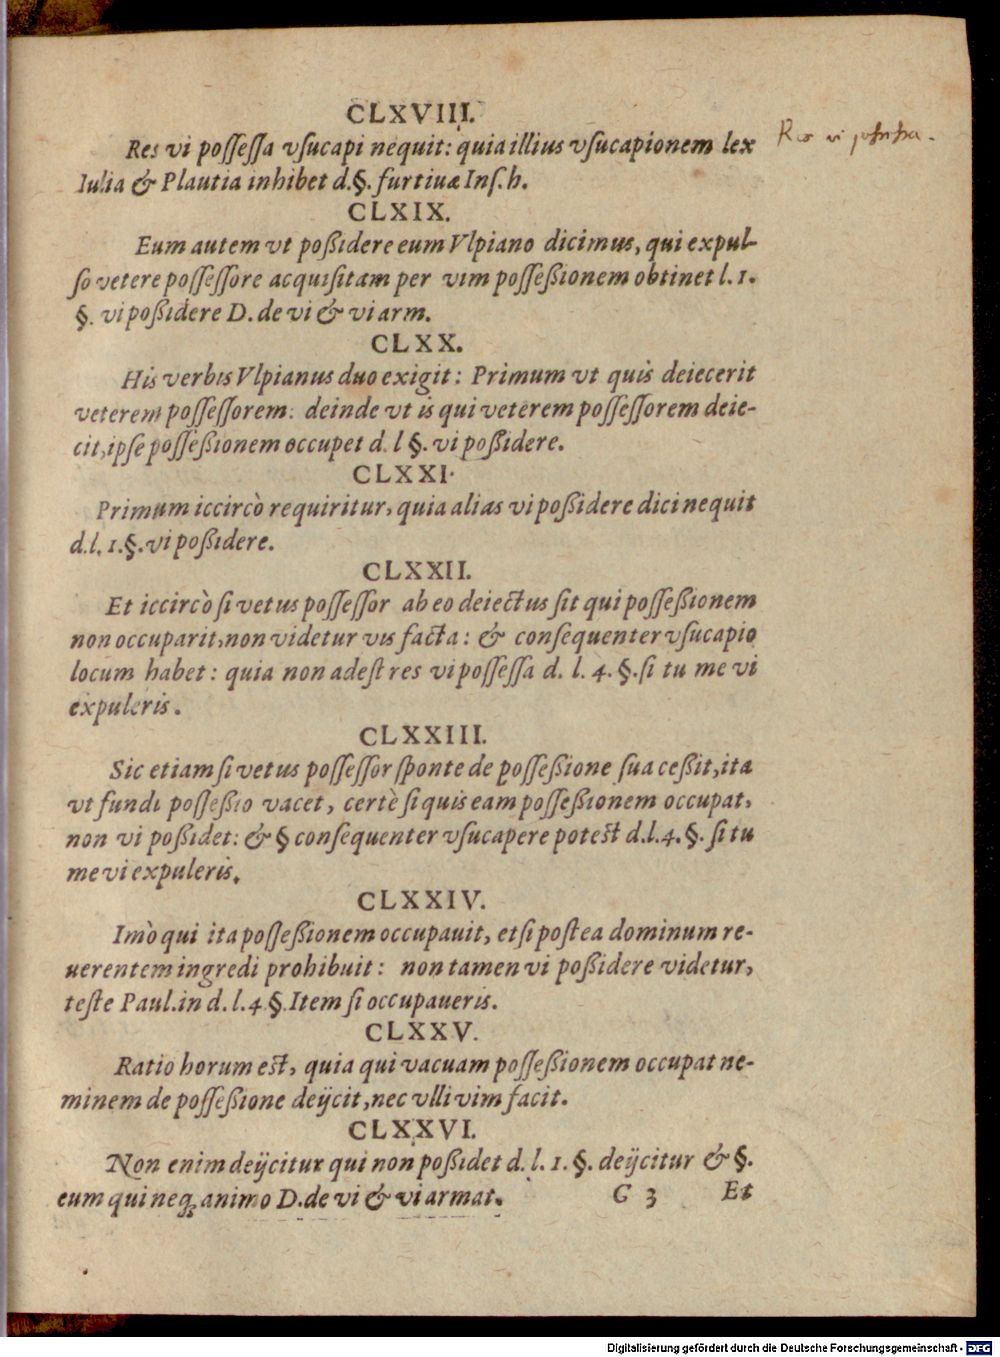 CLXVIII.
Res vi possessa vsucapi nequit: quia illius vsucapionem lex
Iulia & Plautia inhibet d.§. furtiuæ Ins.h.
Res vi possessa.
CLXIX.
Eum autem vt poßidere eum Vlpiano dicimus, qui expul-
so vetere possessore acquisitam per vim posseßionem obtinet l. 1.
§. vi poßidere D. de vi & vi arm.
CLXX.
His verbis Vlpianus duo exigit: Primum vt quis deiecerit
veterem possessorem: deinde vt is qui veterem possessorem deie-
cit, ipse posseßionem occupet d. l §. vi poßidere.
CLXXI.
Primum iccircò requiritur, quia alias vi poßidere dici nequit
d.l. 1.§. vi poßidere.
CLXXII.
Et iccircò si vetus possessor ab eo deiectus sit qui posseßionem
non occuparit, non videtur vis facta: & consequenter vsucapio
locum habet: quia non adest res vi possessa d. l. 4. §. si tu me vi
expuleris.
CLXXIII.
Sic etiam si vetus possessor sponte de posseßione sua ceßit, ita
vt fundi posseßio vacet, certè si quis eam posseßionem occupat,
non vi poßidet: & § consequenter vsucapere potest d.l.4.§. si tu
me vi expuleris.
CLXXIV.
Imò qui ita posseßionem occupauit, etsi postea dominum re-
uerentem ingredi prohibuit: non tamen vi poßidere videtur,
teste Paul.in d. l. 4 §. Item si occupaueris.
CLXXV.
Ratio horum est, quia qui vacuam posseßionem occupat ne-
minem de posseßione deijcit, nec vlli vim facit.
CLXXVI.
Non enim deijcitur qui non poßidet d. l. 1. §. deijcitur & §.
eum qui neq; animo D. de vi & vi armat.
G 3 Et
Digitalisierung gefördert durch die Deutsche Forschungsgemeinschaft - DFG